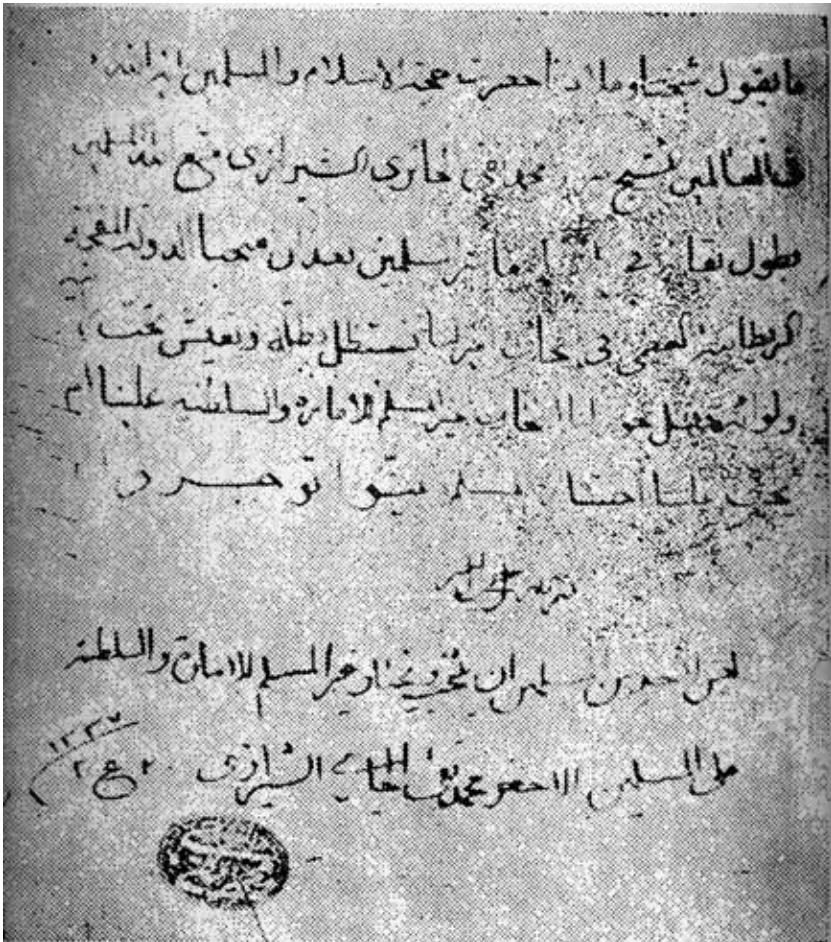 ما يقول شيخنا وملاذنا حضرت حجة الاسلام والمسلمين اية الله
في العالمين الشيخ محمد تقي حائري الشيرازي متع الله المسلمين
بطول بقاه في معاشر المسلمين بعد ان منحتنا الدولة المفخمة
البريطانية العظمى في انتخاب امير لنا نستظل بظله ونعيش تحت
ولوائه فهل يجوز لنا انتخاب غير المسلم للامارة والسلطنة علينا ام
يجب علينا اختيار المسلم بينوا توجروا
ليس لأحد من المسلمين ان ينتخب ويختار غير المسلم للامارة والسلطنة
على المسلمين الاحقر محمد تقي الحائري الشيرازي
٢٠ ع ٢ ١٣٣٧